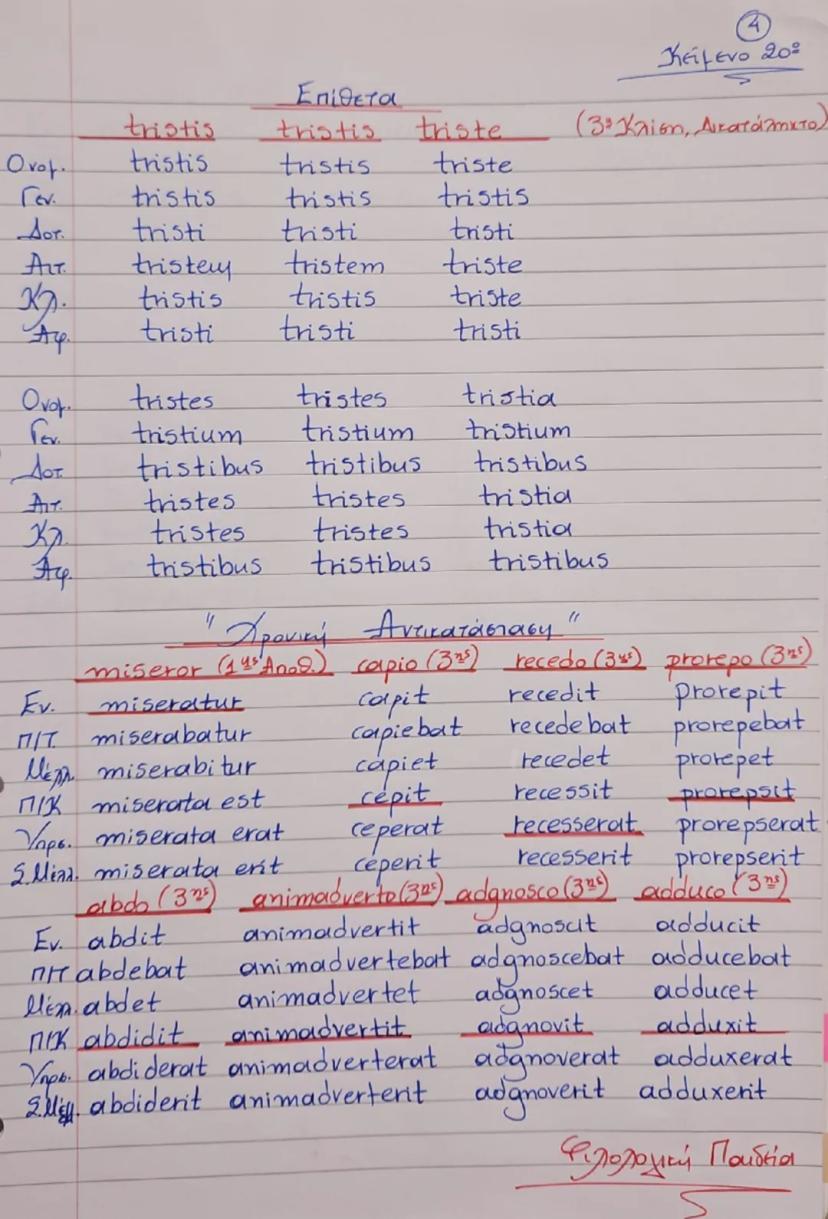 4
Κείμενο 20ο
Επίθετα
tristis tristis triste (3η Κλίση, Δικατάληκτο)
Ονομ. tristis tristis triste
Γεν. tristis tristis tristis
Δοτ. tristi tristi tristi
Αιτ. tristem tristem triste
Κλ. tristis tristis triste
Αφ. tristi tristi tristi
Ονομ. tristes tristes tristia
Γεν. tristium tristium tristium
Δοτ. tristibus tristibus tristibus
Αιτ. tristes tristes tristia
Κλ. tristes tristes tristia
Αφ. tristibus tristibus tristibus
"Χρονική Αντικατάσταση"
miseror (1ης Αποθ.) capio (3ης) recedo (3ης) prorepo (3ης)
Εν. miseratur capit recedit prorepit
Π/Τ miserabatur capiebat recedebat prorepebat
Μέλλ. miserabitur capiet recedet prorepet
Π/Κ miserata est cepit recessit prorepsit
Υπρσ. miserata erat ceperat recesserat prorepserat
Σ.Μέλλ. miserata erit ceperit recesserit prorepserit
abdo (3ης) animadverto (3ης) adgnosco (3ης) adduco (3ης)
Εν. abdit animadvertit adgnoscit adducit
Π/Τ abdebat animadvertebat adgnoscebat adducebat
Μέλλ. abdet animadvertet adgnoscet adducet
Π/Κ abdidit animadvertit adgnovit adduxit
Υπρσ. abdiderat animadverterat adgnoverat adduxerat
Σ.Μέλλ. abdiderit animadverterit adgnoverit adduxerit
Φιλολογική Παιδεία